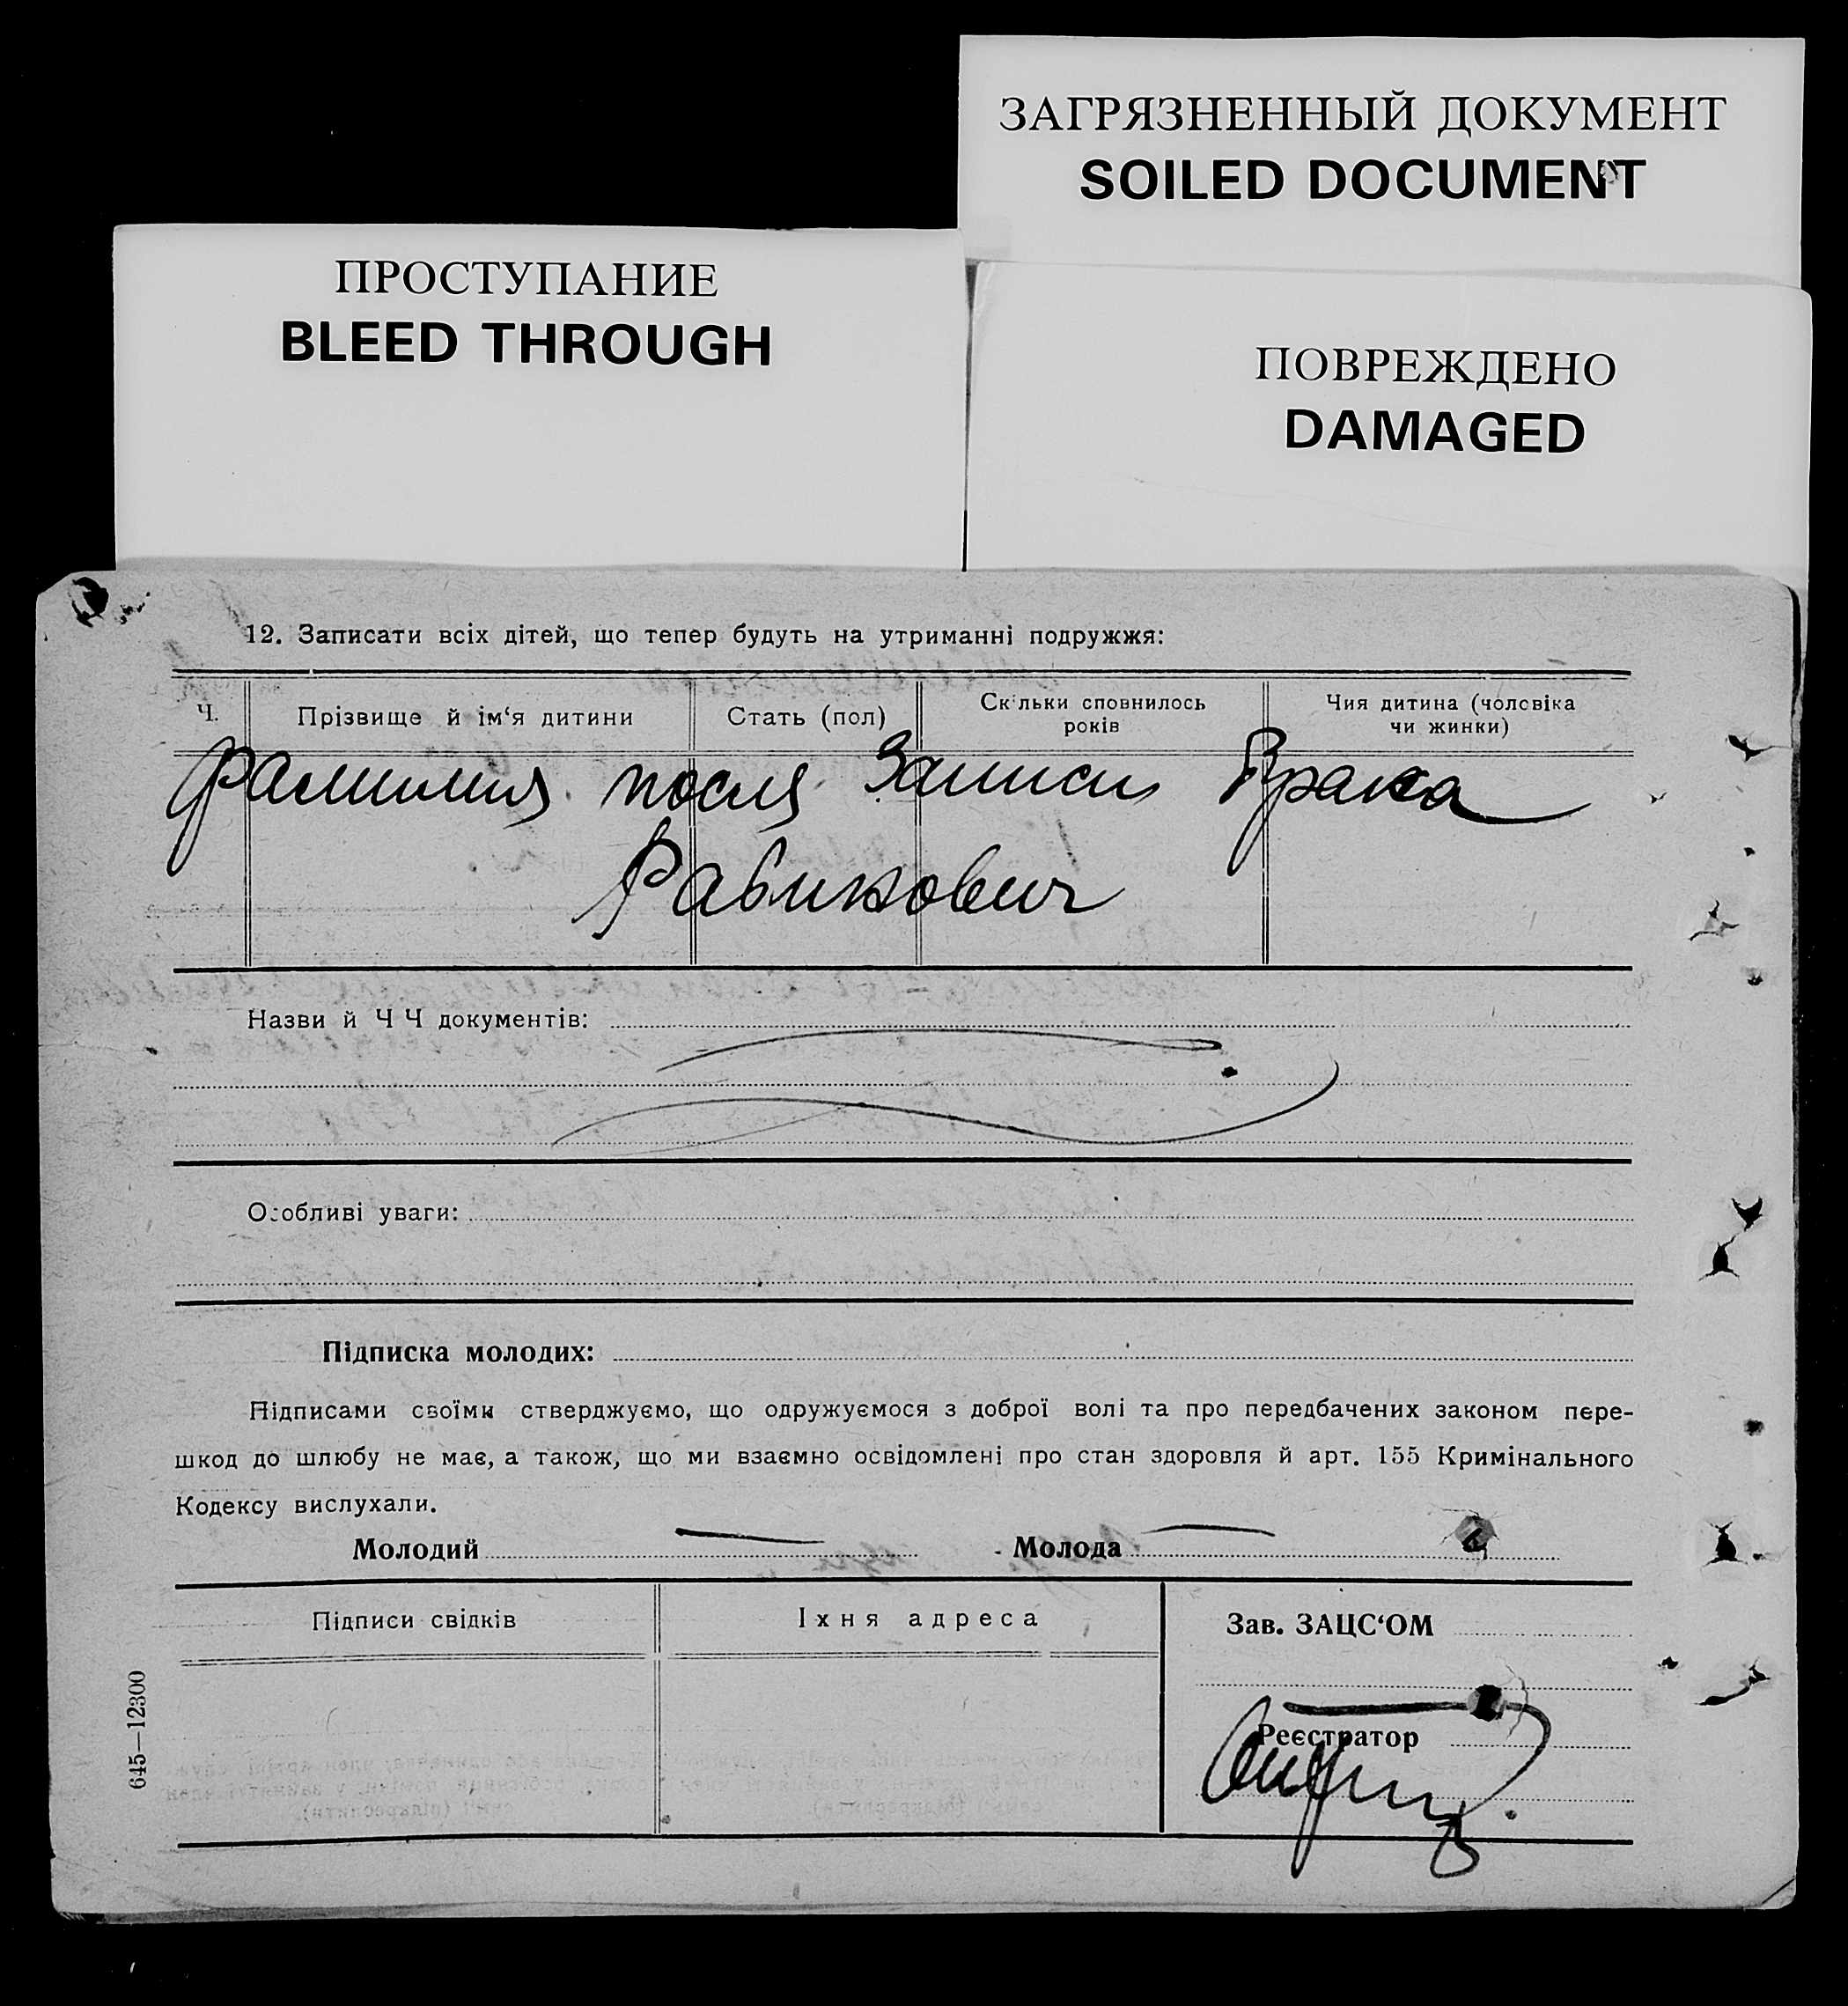 ЗАГРЯЗНЕННЫЙ ДОКУМЕНТ
SOILED DOCUMENT
ПРОСТУПАНИЕ
BLEED THROUGH
ПОВРЕЖДЕНО
DAMAGED
12. Записати всіх дітей, що тепер будуть на утриманні подружжя:
Ч.
Прізвище й ім‘я дитини
Стать (пол)
Скільки сповнилось
років
Чия дитина (чоловіка
чи жинки)
Фамилия после записи Брака
Рабинович
Назви й Ч Ч документів:
Особливі уваги:
Підписка молодих:
Підписами своїми стверджуємо, що одружуємося з доброї волі та про передбачених законом пере-
шкод до шлюбу не має, а також, що ми взаємно освідомлені про стан здоровля й арт. 155 Кримінального
Кодексу вислухали.
Молодий Молода
Підписи свідків
Іхня адреса
Зав. ЗАЦС‘ОМ
Реєстратор
645—12300